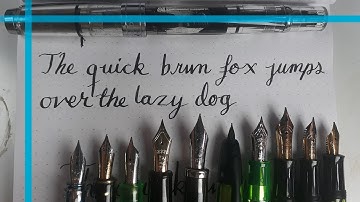 The quick brun fox jumps
over the lazy dog